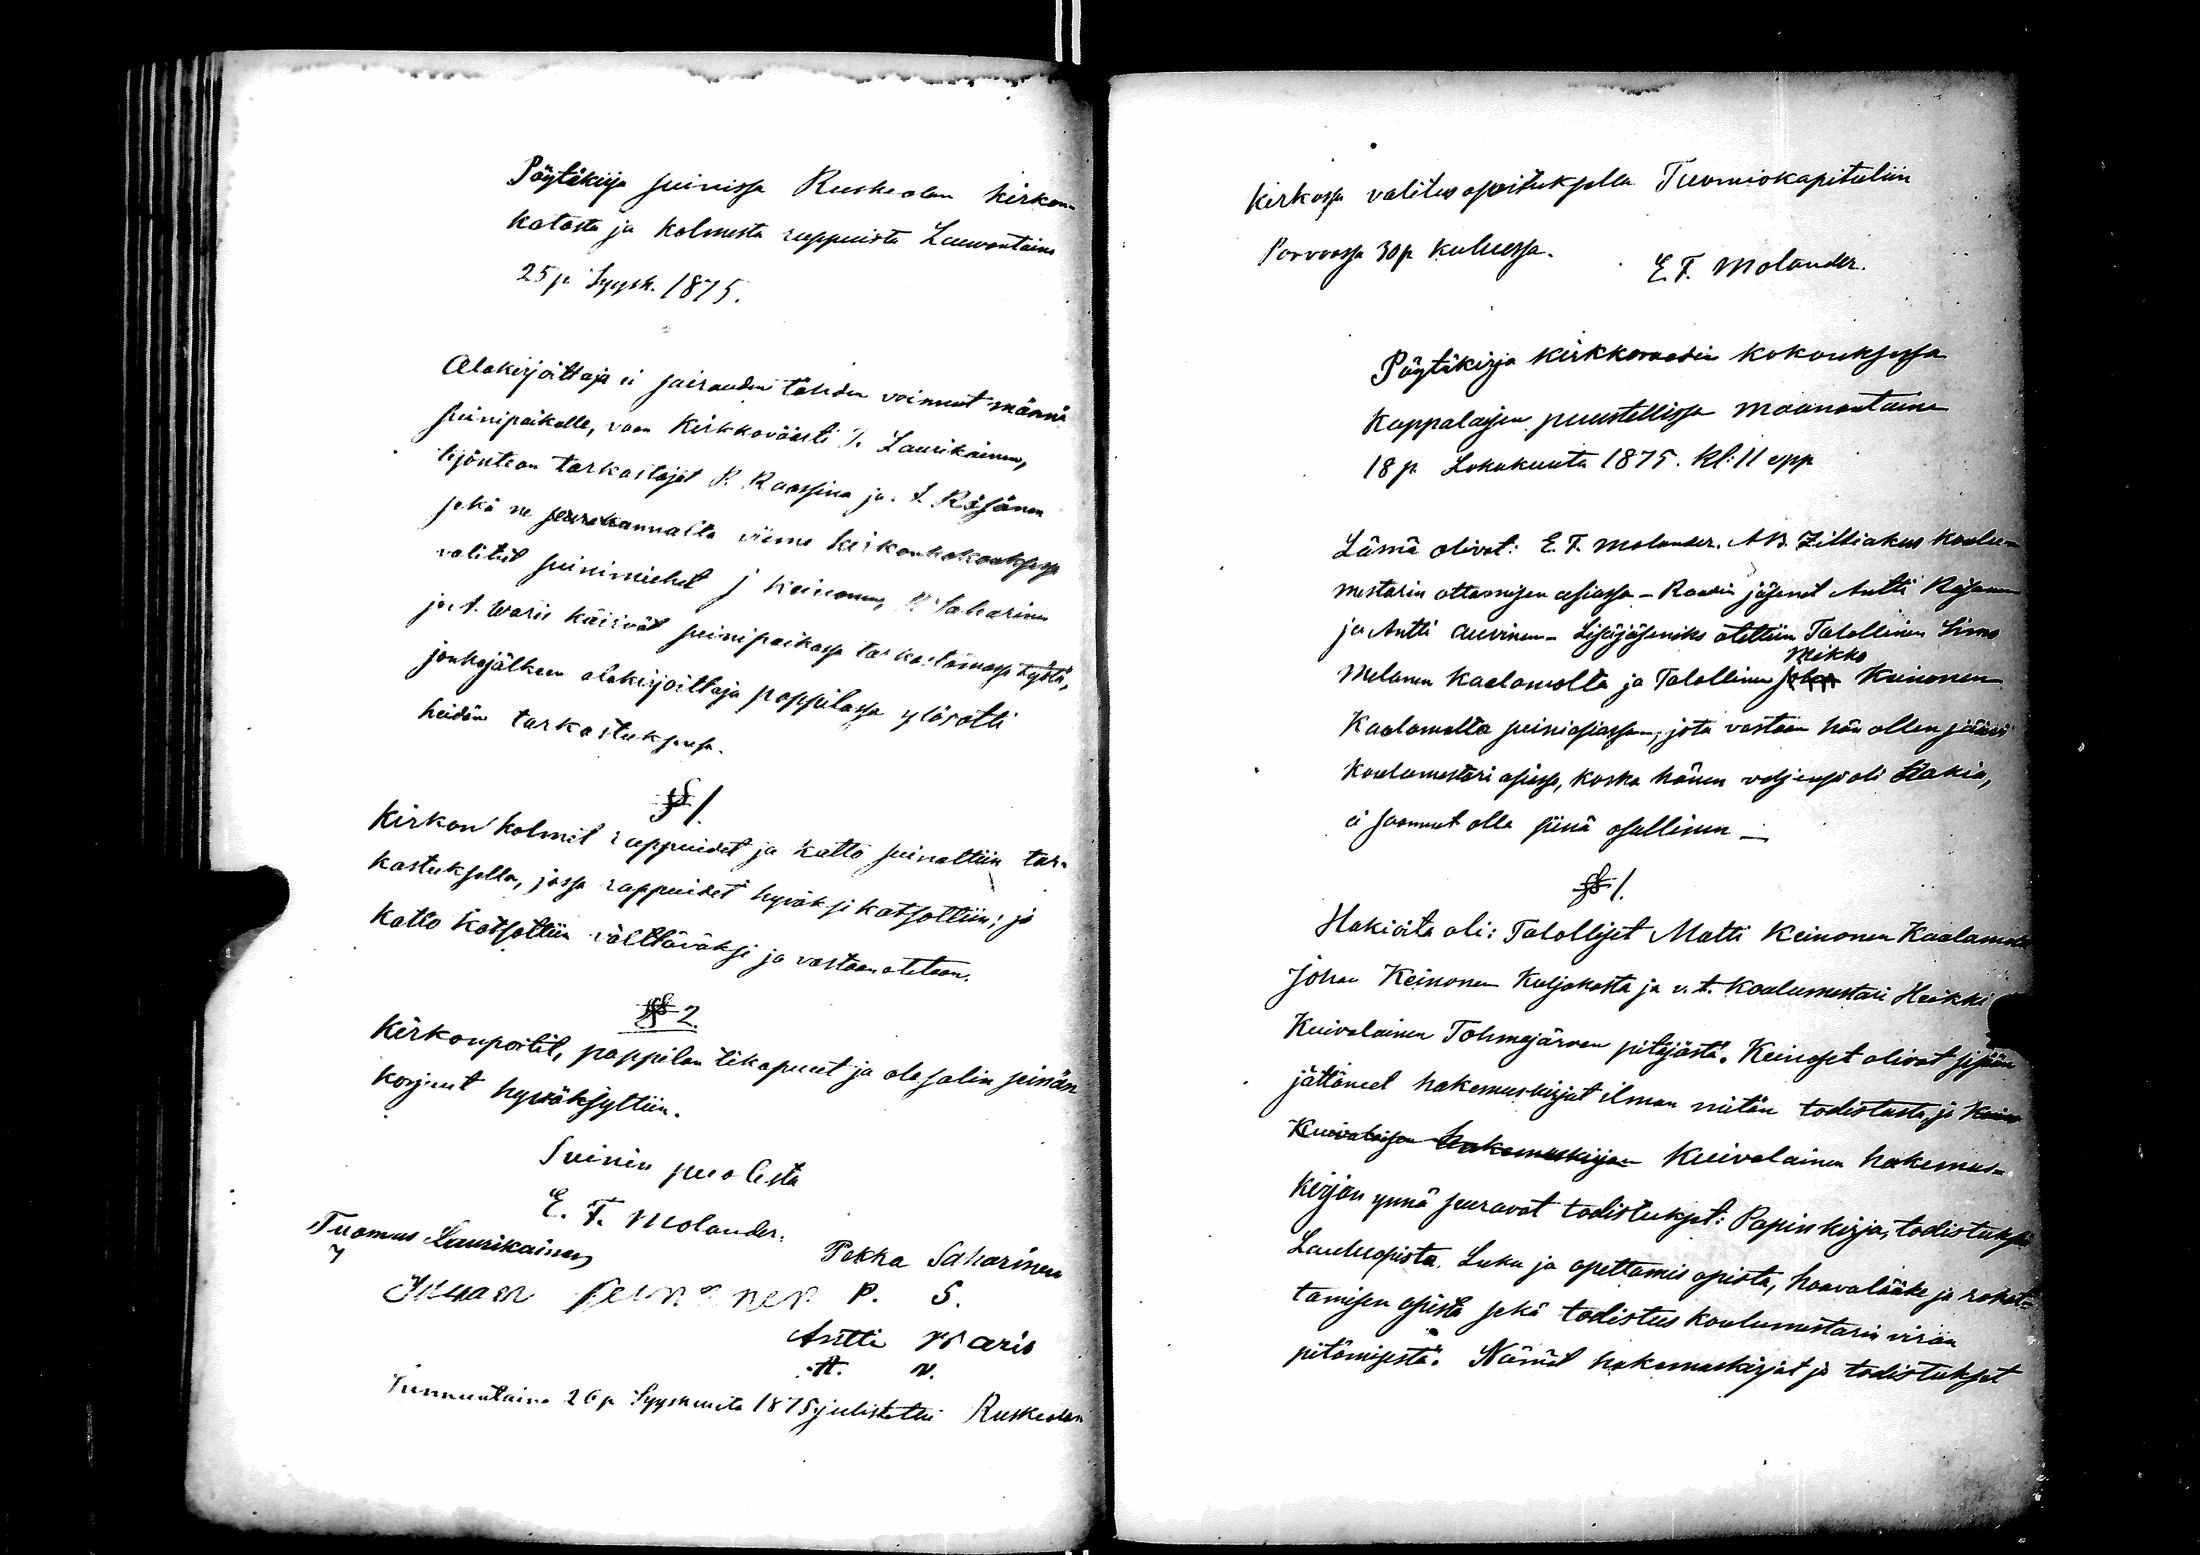 Pöytäkirja syinissä Ruskealan kirkon
katosta ja kolmesta rappuista Lauvantaina
25 p. Syysk. 1875.
Alakirjoittaja ei sairauden tähden voinnut männä
syinipaikalle, vaan Kirkkoväärti T. Laurikainen,
työnteon tarkastajat P. Raassina ja A. Räsänen
sekä ne seurakunnalta viime kirkonkokouksessa
valitut syinimiehet J Keinonen, P. Saharinen
ja A. Waris käisivät syinipaikassa tarkastamassa työtä,
jonkajälken alakirjoittaja pappilassa ylösotti
heidän tarkastuksensa.
§ 1.
Kirkon kolmet rappuidet ja katto syinattiin tar-
kastuksella, jossa rappuidet hyväksi katsottiin; ja
katto katsottiin välttäväksi ja vastaan otetaan.
§ 2.
Kirkonportit, pappilan tikapuut ja ala salin seinän
korjuut hyväksyttiin.
Syinin puolesta
E. F. Molander.
Tuomas Laurikainen
Pekka Saharinen
Juhan Keinonen P. S.
Antti Waris
A. W.
Sunnuntaina 26 p Syyskuuta 1875 julistettu Ruskealan
kirkossa valitus osoituksella Tuomiokapituliin
Porvoossa 30 p. kuluessa.
E. F. Molander.
Pöytäkirja kirkkoraadin kokouksessa
Kappalaisen puustellissa Maanantaina
18 p. Lokakuuta 1875. Kl: 11 epp
Läsnä olivat: E. F. Molander. A B. Zilliakus Koulu-
mestarin ottamisen asiassa - Raadin jäsenet Antti Räsänen
ja Antti Auvinen - Lisäjäseniks otettiin Talollinen Simo
Mikko
Melanen Kaalamolta ja Talollinen Johan Keinonen
Kaalamolta syiniasiassa, jota vastaan hän ollen jäävi
Koulumestari asiassa, koska hänen veljensä oli Hakia,
ei saannut olla siinä osallinen —
§ 1.
Hakioita oli: Talolliset Matti Keinonen Kaalamolta
Johan Keinonen Kuljakosta ja v. t. Koulumestari Heikki
Kuivalainen Tohmajärven pitäjästä. Keinoset olivat sisään
jättäneet hakemuskirjat ilman mitän todistusta, ja
Kuivalaisen hakemuskirjan Kuivalainen hakemus-
kirjan ynnä seuravat todistukset: Papin kirja, todistukset
Lauluopista. Luku ja opettamis opista, haavalääke ja rokot-
tamisen opista sekä todistus Koulumestarin viran
pitämisestä. Nämät hakemuskirjat ja todistukset